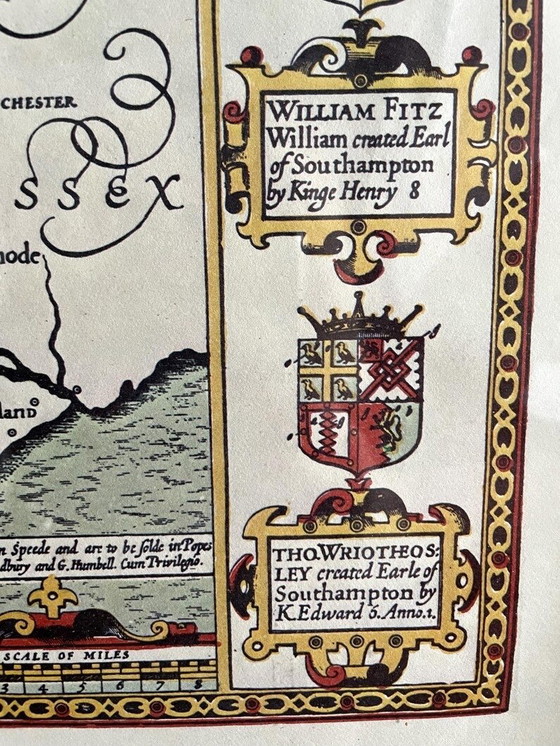 CHESTER
SSEX
WILLIAM FITZ
William created Earl
of Southampton
by Kinge Henry 8
THO. WRIOTHEOS:
LEY created Earle of
Southampton by
K. Edward 6. Anno. 1.
Speede and are to be solde in Popes
dbury and G. Humbell. Cum Privilegio.
SCALE OF MILES
3 4 5 6 7 8